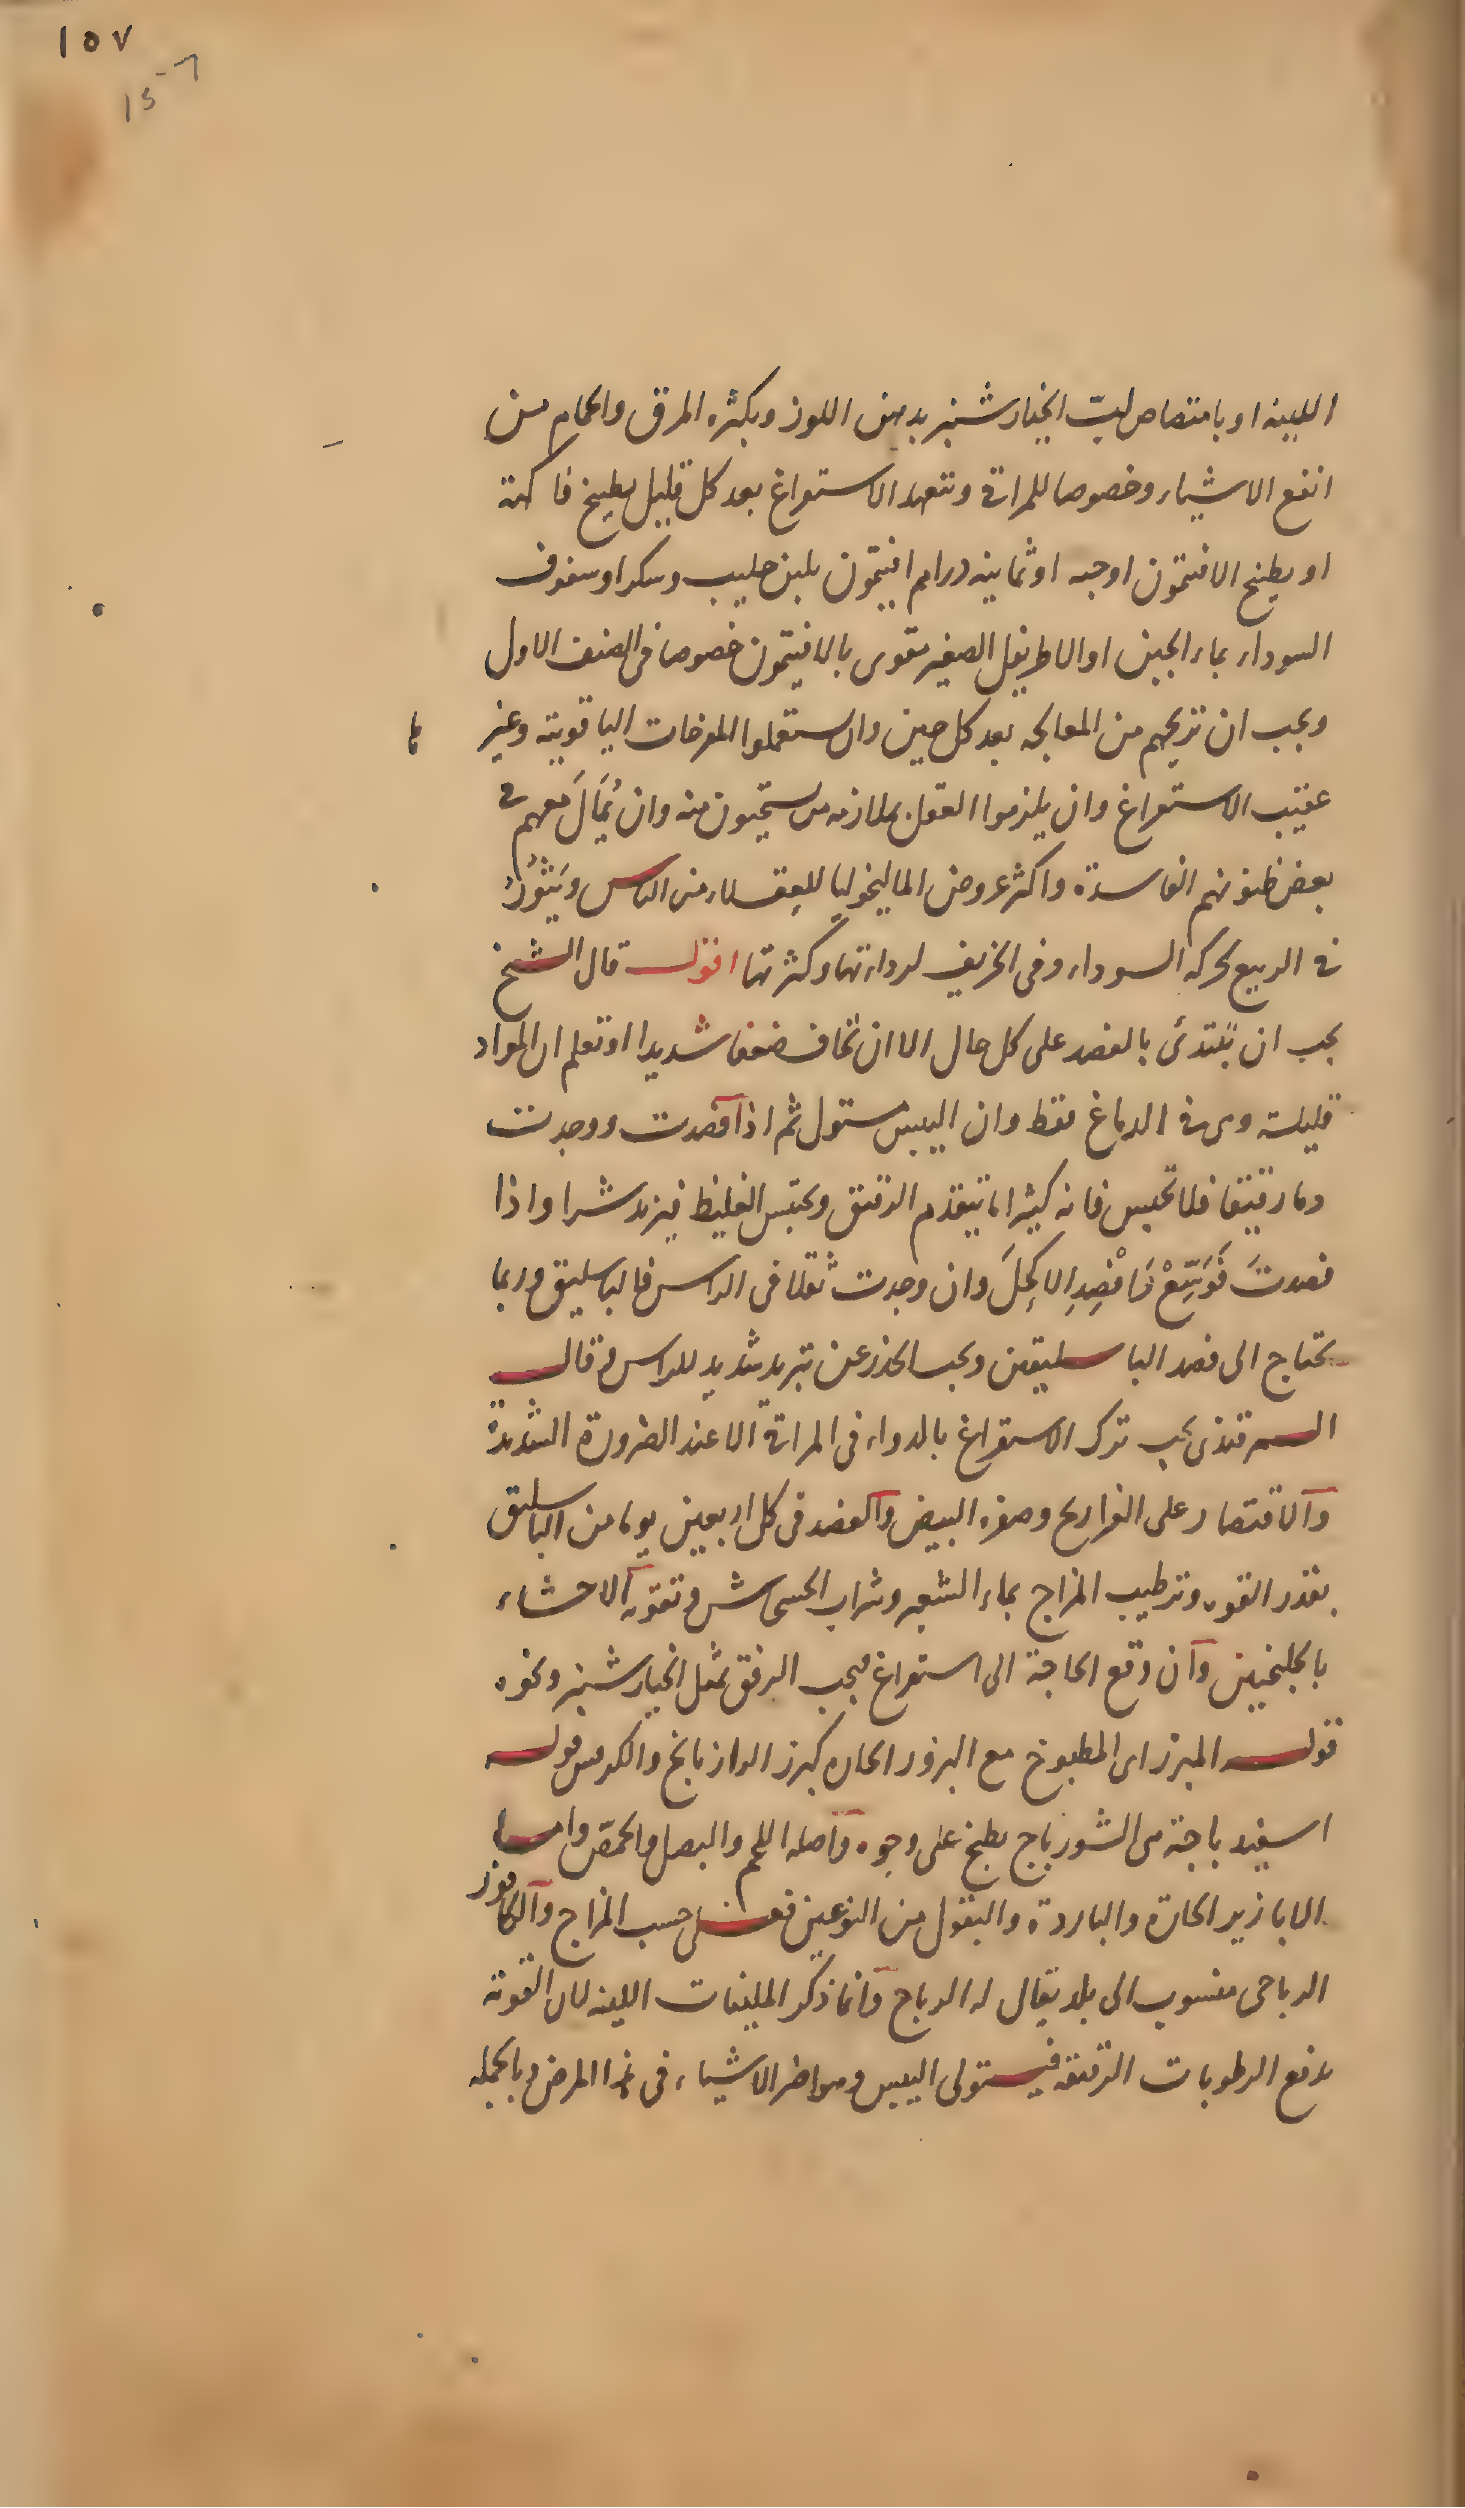 ١٥٧
157
اللينه او بامتصاص لبّ الخيار شنبر بدهن اللوز وبكثره المرق والحمام من
انفع الاشياء وخصوصا للمراقى ونتعهد الاستفراغ بعد كل قليل بطبيخ فاكهة
او بطبيخ الافتيمون او حبه او ثمانيه دراهم افتيمون بلبن حليب وسكر او سفوف
السوداء بماء الجبن او الاطريفل الصغير مقوى بالافتيمون خصوصا فى الصنف الاول
ويجب ان تريحهم من المعالجه بعد كل حين وان يستعملوا المفرحات الياقوتيه وغير
ها
عقيب الاستفراغ وان يلزموا العقل بملازمه من يستحيون منه وان يُمَالَ معهم فى
بعض ظنونهم الفاسدة واكثر عروض الماليخوليا للعقلاء من الناس ويَثُورُ
فى الربيع لحركه السوداء وفى الخريف لرداءتها وكثرتها اقول قال الشيخ
يجب ان يُبتدئ بالفصد على كل حال الا ان تخاف ضعفا شديدا او تعلم ان المواد
قليلة وهى فى الدماغ فقط وان اليبس مستول ثم اذا فصدت ووجدت
دما رقيقا فلا تحبس فانه كثيرا ما يتقدم الرقيق ويحتبس الغليظ فيزيد شرا واذا
فصدتَ فَوَسِّعْ وَافْصِدِ الاكحِلَ وان وجدت ثقلا فى الراس فالباسليق وربما
يحتاج الى فصد الباسليقين ويجب الحذر عن تبريد شديد للراس وقال
السمرقندى يجب ترك الاستفراغ بالدواء فى المراقى الا عند الضرورة الشديدة
والاقتصار على الفراريج وصفره البيض والفصد فى كل اربعين يوما من الباسليق
بقدر القوه وترطيب المزاج بماء الشعير وشراب الخشخاش وتقويه الاحشاء
بالجلنجبين وان وقع الحاجة الى استفراغ فيجب الرفق بمثل الخيار شنبر ونحوه
قوله المبزر اى المطبوخ مع البزور الحاره كبزر الرازيانج والكرفس قوله
اسفيدباجة هى الشورباج يطبخ على وجوه واصله اللحم والبصل والحمّص واما
الابازير الحارة والباردة والبقول من النوعين فعلى حسب المزاج والكافور
الرباحى منسوب الى بلد يقال له الرباح وانما ذكر الملينات اللينه لان القويه
يدفع الرطوبات الرقيقه فيستولى اليبس وهو اضر الاشياء فى هذا المرض وبالجمله